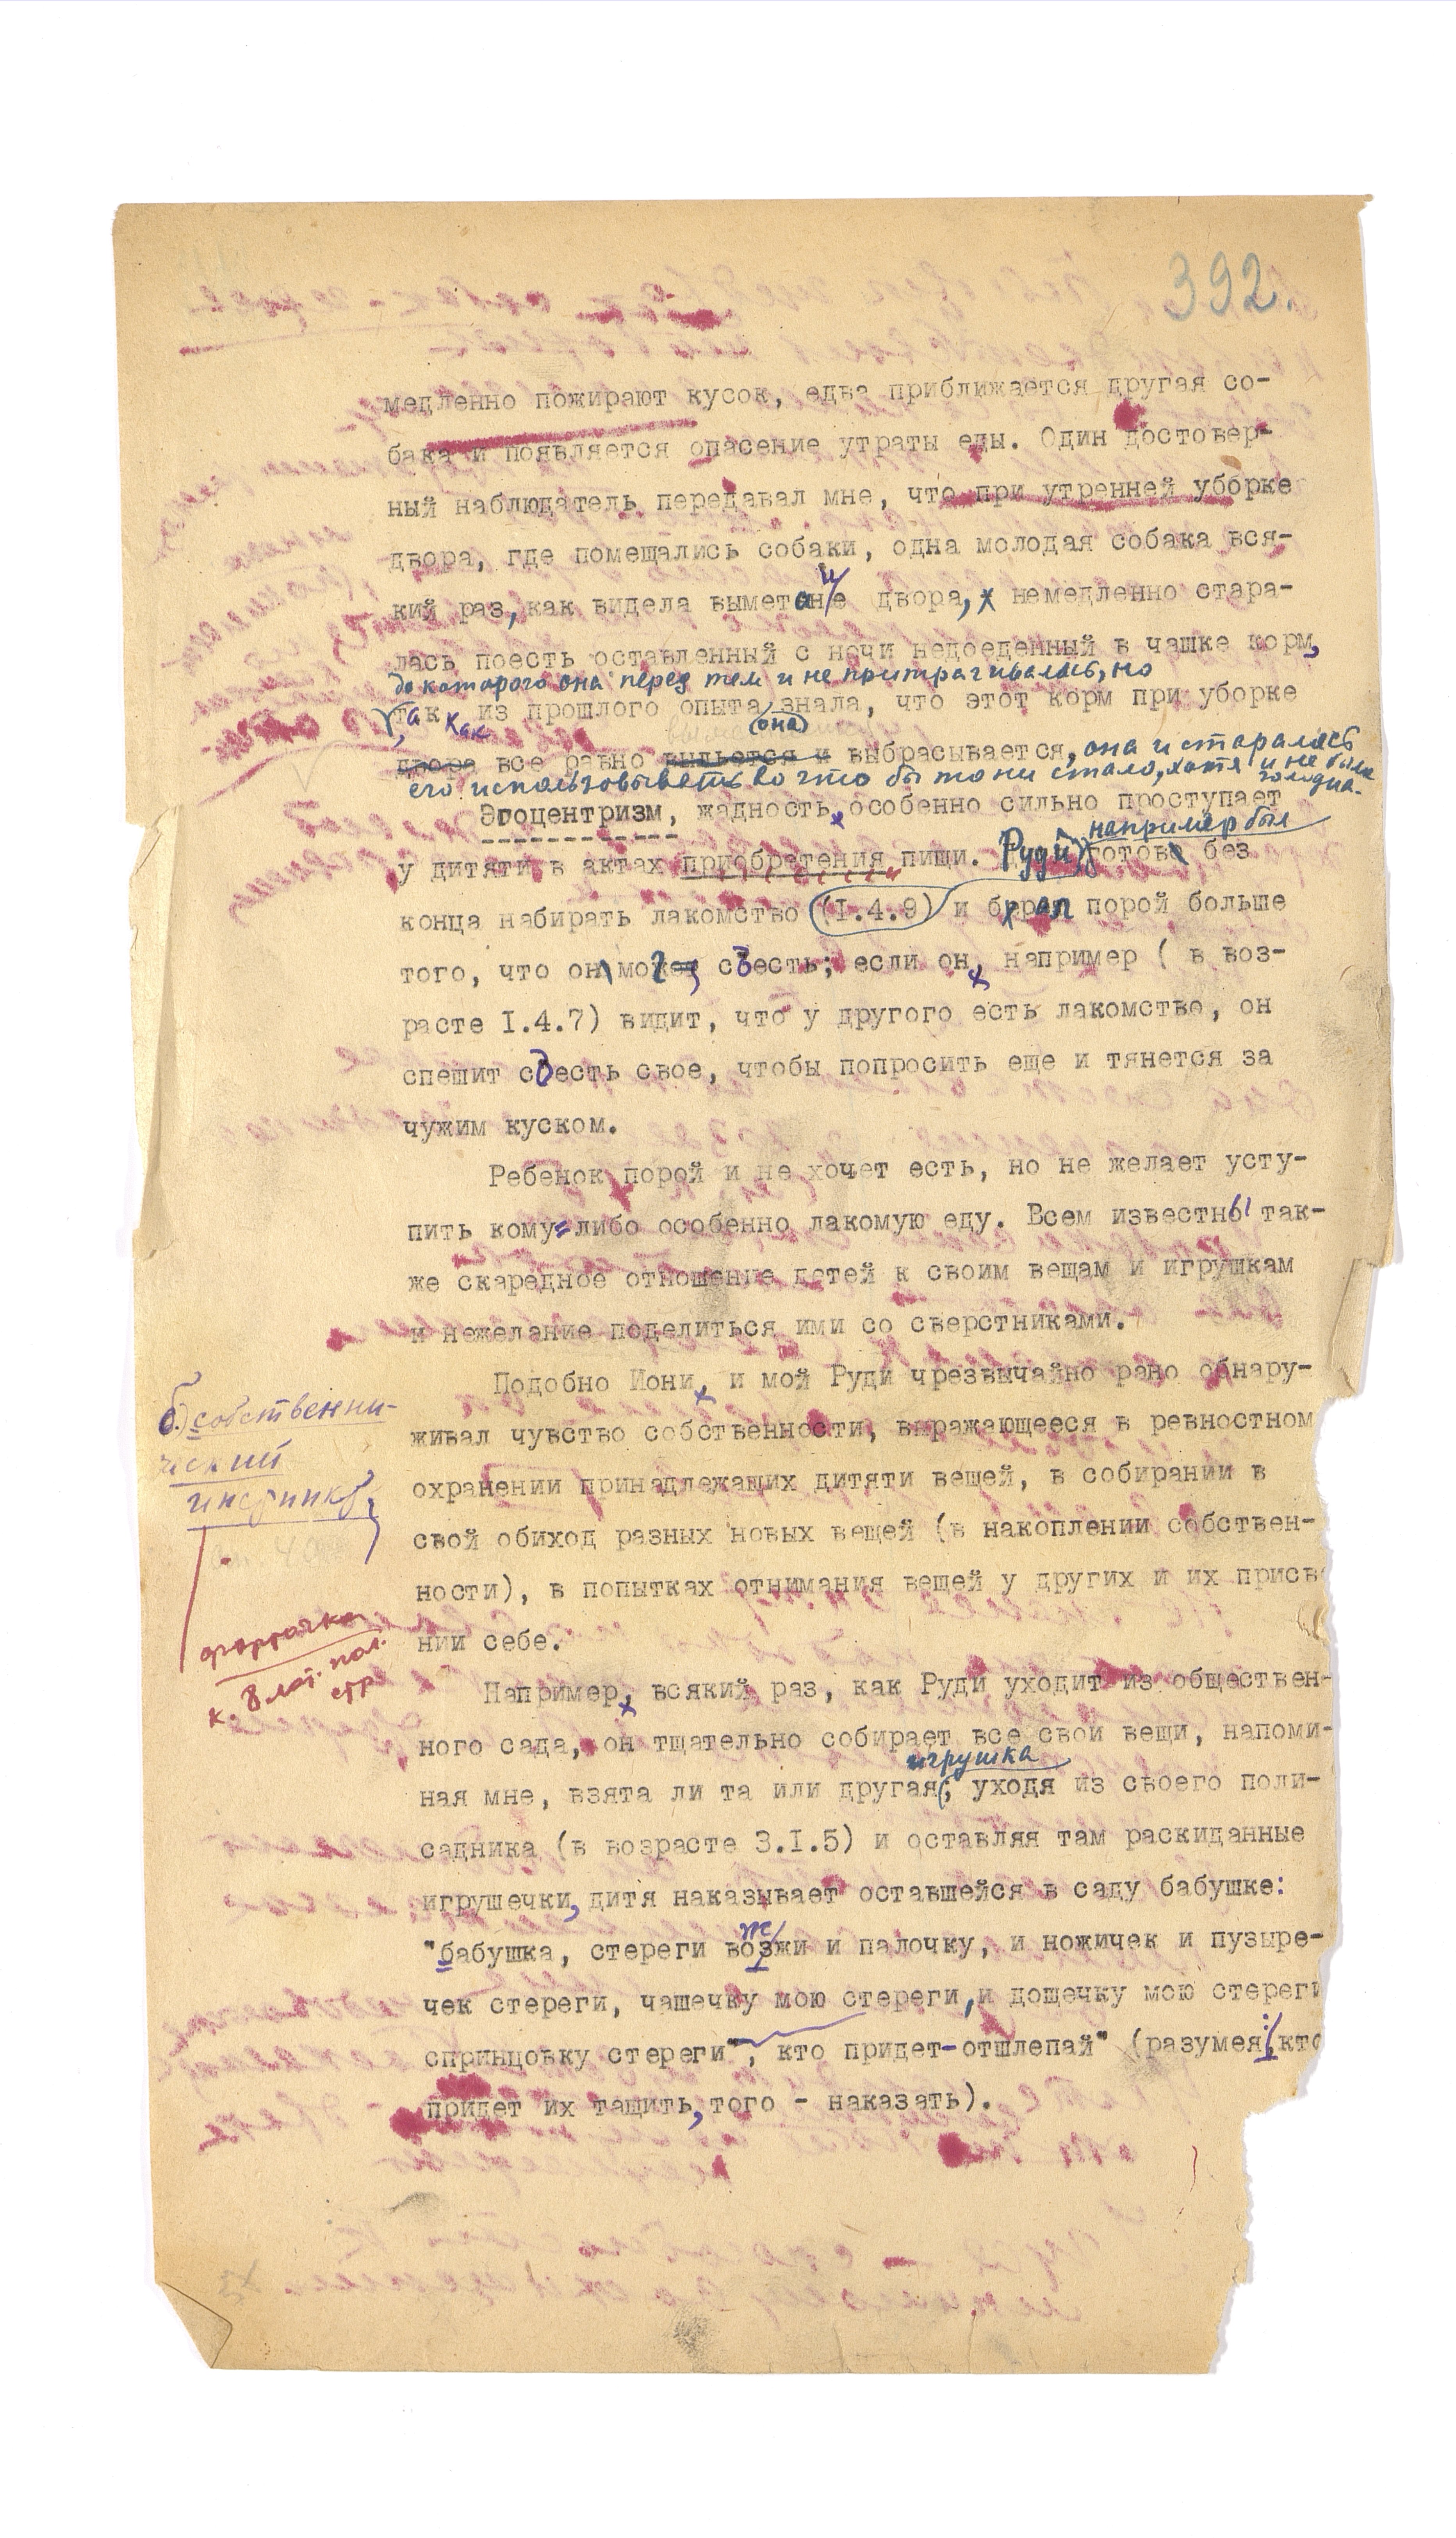 392.
медленно пожирают кусок, едва приближается другая со-
бака и появляется опасение утраты еды. Один достовер-
ный наблюдатель передавал мне, что при утренней уборке
двора, где помещались собаки, одна молодая собака вся-
кий раз, как видела выметание двора, немедленно стара-
лась поесть оставленный с ночи недоеденный в чашке корм,
до которого она перед тем и не притрагивалась, но
так как из прошлого опыта (она) знала, что этот корм при уборке
двора все равно выльется и выбрасывается, она и старалась
его использовывать во что бы то ни стало, хотя и не была
голодна.
Эгоцентризм, жадность особенно сильно проступает
например был
у дитяти в актах приобретения пищи. Руди готов без
конца набирать лакомство (I.4.9) и брал порой больше
того, что он мог съесть; если он, например ( в воз-
расте I.4.7) видит, что у другого есть лакомство, он
спешит съесть свое, чтобы попросить еще и тянется за
чужим куском.
Ребенок порой и не хочет есть, но не желает усту-
пить кому=либо особенно лакомую еду. Всем известны так-
же скаредное отношение детей к своим вещам и игрушкам
и нежелание поделиться ими со сверстниками.
Подобно Иони, и мой Руди чрезвычайно рано обнару-
б.) собственни-
ческий
инстинкт
живал чувство собственности, выражающееся в ревностном
охранении принадлежащих дитяти вещей, в собирании в
свой обиход разных новых вещей (в накоплении собствен-
ности), в попытках отнимания вещей у других и их присв
нии себе.
к. 8 лот. пол.
стр
Например, всякий раз, как Руди уходит из обществен-
ного сада, он тщательно собирает все свои вещи, напоми-
игрушка
ная мне, взята ли та или другая; уходя из своего поли-
садника (в возрасте 3.I.5) и оставляя там раскиданные
игрушечки, дитя наказывает оставшейся в саду бабушке:
"бабушка, стереги возжи и палочку, и ножичек и пузыре-
чек стереги, чашечку мою стереги, и дощечку мою стереги
спринцовку стереги", кто придет-отшлепай" (разумея: кто
придет их тащить, того - наказать).